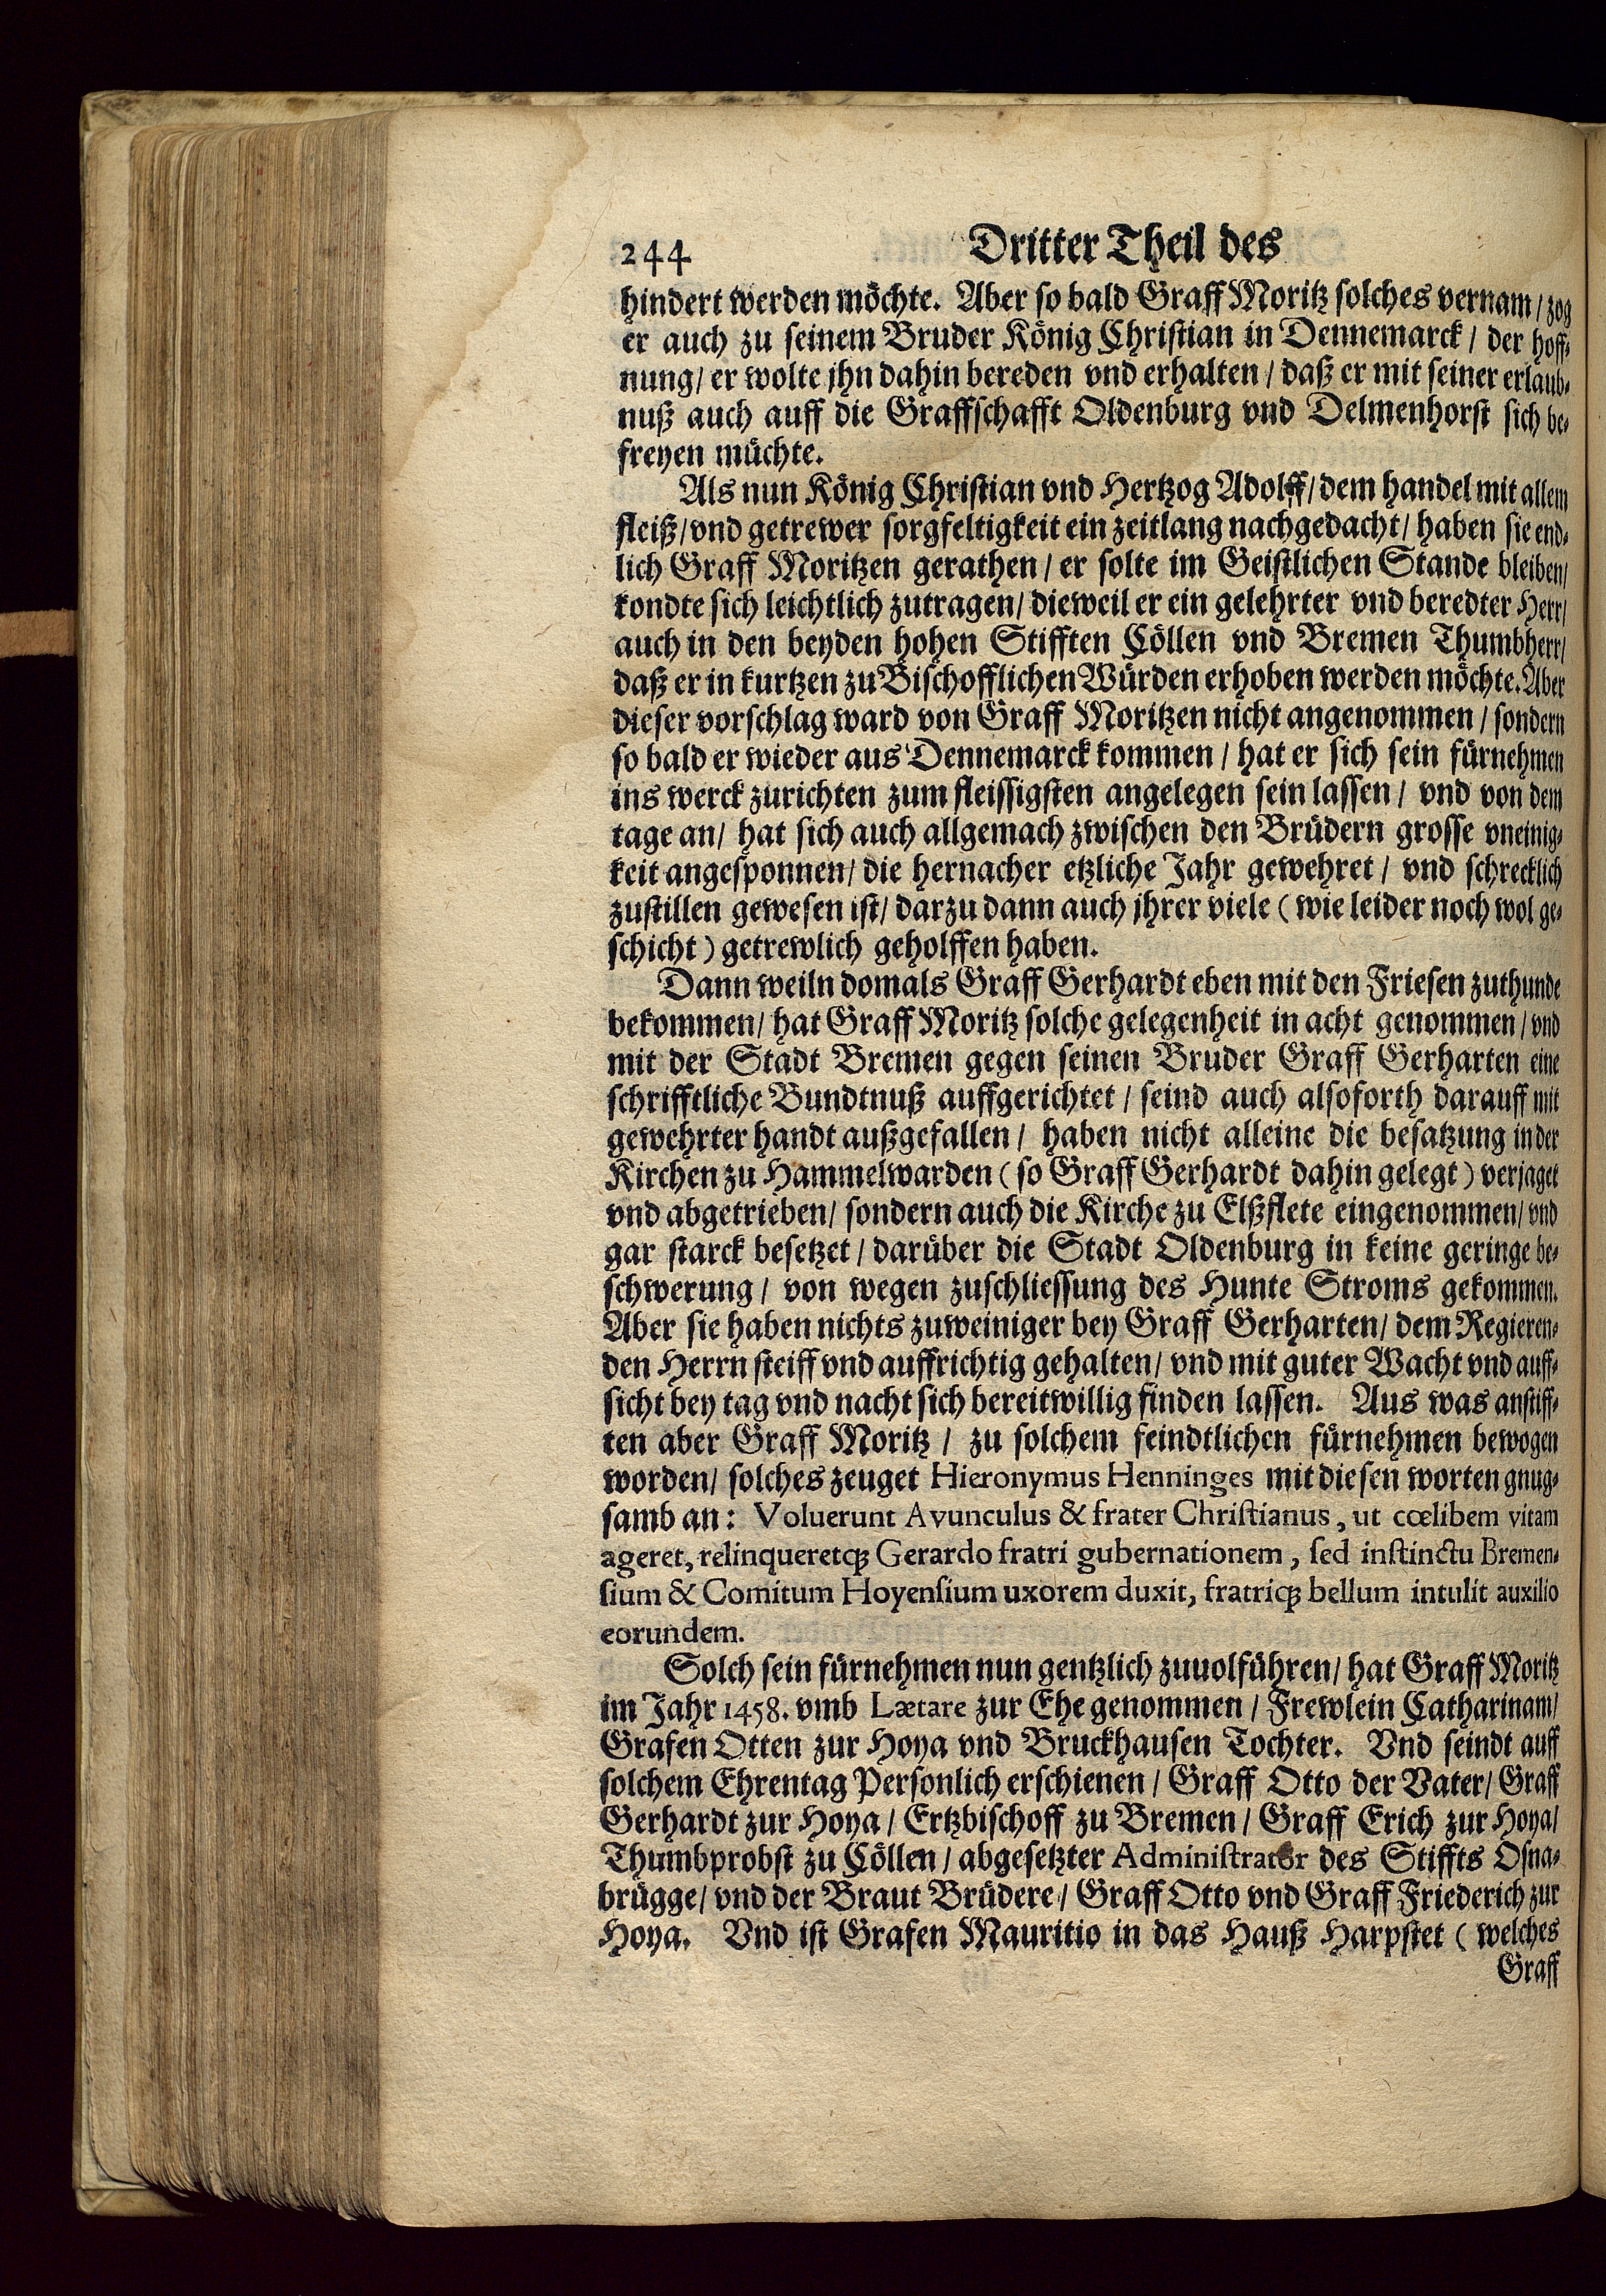 244 Dritter Theil des
hindert werden möchte. Aber so bald Graff Moritz solches vernam / zog
er auch zu seinem Bruder König Christian in Dennemarck / der hoff-
nung / er wolte jhn dahin bereden vnd erhalten / daß er mit seiner erlaub-
nuß auch auff die Graffschafft Oldenburg vnd Delmenhorst sich be-
freyen müchte.
Als nun König Christian vnd Hertzog Adolff / dem handel mit allem
fleiß / vnd getrewer sorgfeltigkeit ein zeitlang nachgedacht / haben sie end-
lich Graff Moritzen gerathen / er solte im Geistlichen Stande bleiben /
kondte sich leichtlich zutragen / dieweil er ein gelehrter vnd beredter Herr /
auch in den beyden hohen Stifften Cöllen vnd Bremen Thumbherr /
daß er in kurtzen zu Bischofflichen Würden erhoben werden möchte. Aber
dieser vorschlag ward von Graff Moritzen nicht angenommen / sondern
so bald er wieder aus Dennemarck kommen / hat er sich sein fürnehmen
ins werck zurichten zum fleissigsten angelegen sein lassen / vnd von dem
tage an / hat sich auch allgemach zwischen den Brüdern grosse vneinig-
keit angesponnen / die hernacher etzliche Jahr gewehret / vnd schrecklich
zustillen gewesen ist / darzu dann auch jhrer viele ( wie leider noch wol ge-
schicht ) getrewlich geholffen haben.
Dann weiln domals Graff Gerhardt eben mit den Friesen zuthunde
bekommen / hat Graff Moritz solche gelegenheit in acht genommen / vnd
mit der Stadt Bremen gegen seinen Bruder Graff Gerharten eine
schrifftliche Bundtnuß auffgerichtet / seind auch alsoforth darauff mit
gewehrter handt außgefallen / haben nicht alleine die besatzung in der
Kirchen zu Hammelwarden ( so Graff Gerhardt dahin gelegt ) verjaget
vnd abgetrieben / sondern auch die Kirche zu Elßflete eingenommen / vnd
gar starck besetzet / darüber die Stadt Oldenburg in keine geringe be-
schwerung / von wegen zuschliessung des Hunte Stroms gekommen.
Aber sie haben nichts zuweiniger bey Graff Gerharten / dem Regieren-
den Herrn steiff vnd auffrichtig gehalten / vnd mit guter Wacht vnd auff-
sicht bey tag vnd nacht sich bereitwillig finden lassen. Aus was anstiff-
ten aber Graff Moritz / zu solchem feindtlichen fürnehmen bewogen
worden / solches zeuget Hieronymus Henninges mit diesen worten gnug-
samb an: Voluerunt Avunculus & frater Christianus, ut cœlibem vitam
ageret, relinqueretq; Gerardo fratri gubernationem, sed instinctu Bremen-
sium & Comitum Hoyensium uxorem duxit, fratriq; bellum intulit auxilio
eorundem.
Solch sein fürnehmen nun gentzlich zuuolführen / hat Graff Moritz
im Jahr 1458. vmb Lætare zur Ehe genommen / Frewlein Catharinam /
Grafen Otten zur Hoya vnd Bruckhausen Tochter. Vnd seindt auff
solchem Ehrentag Personlich erschienen / Graff Otto der Vater / Graff
Gerhardt zur Hoya / Ertzbischoff zu Bremen / Graff Erich zur Hoya /
Thumbprobst zu Cöllen / abgesetzter Administrator des Stiffts Osna-
brügge / vnd der Braut Brüdere / Graff Otto vnd Graff Friederich zur
Hoya. Vnd ist Grafen Mauritio in das Hauß Harpstet ( welches
Graff